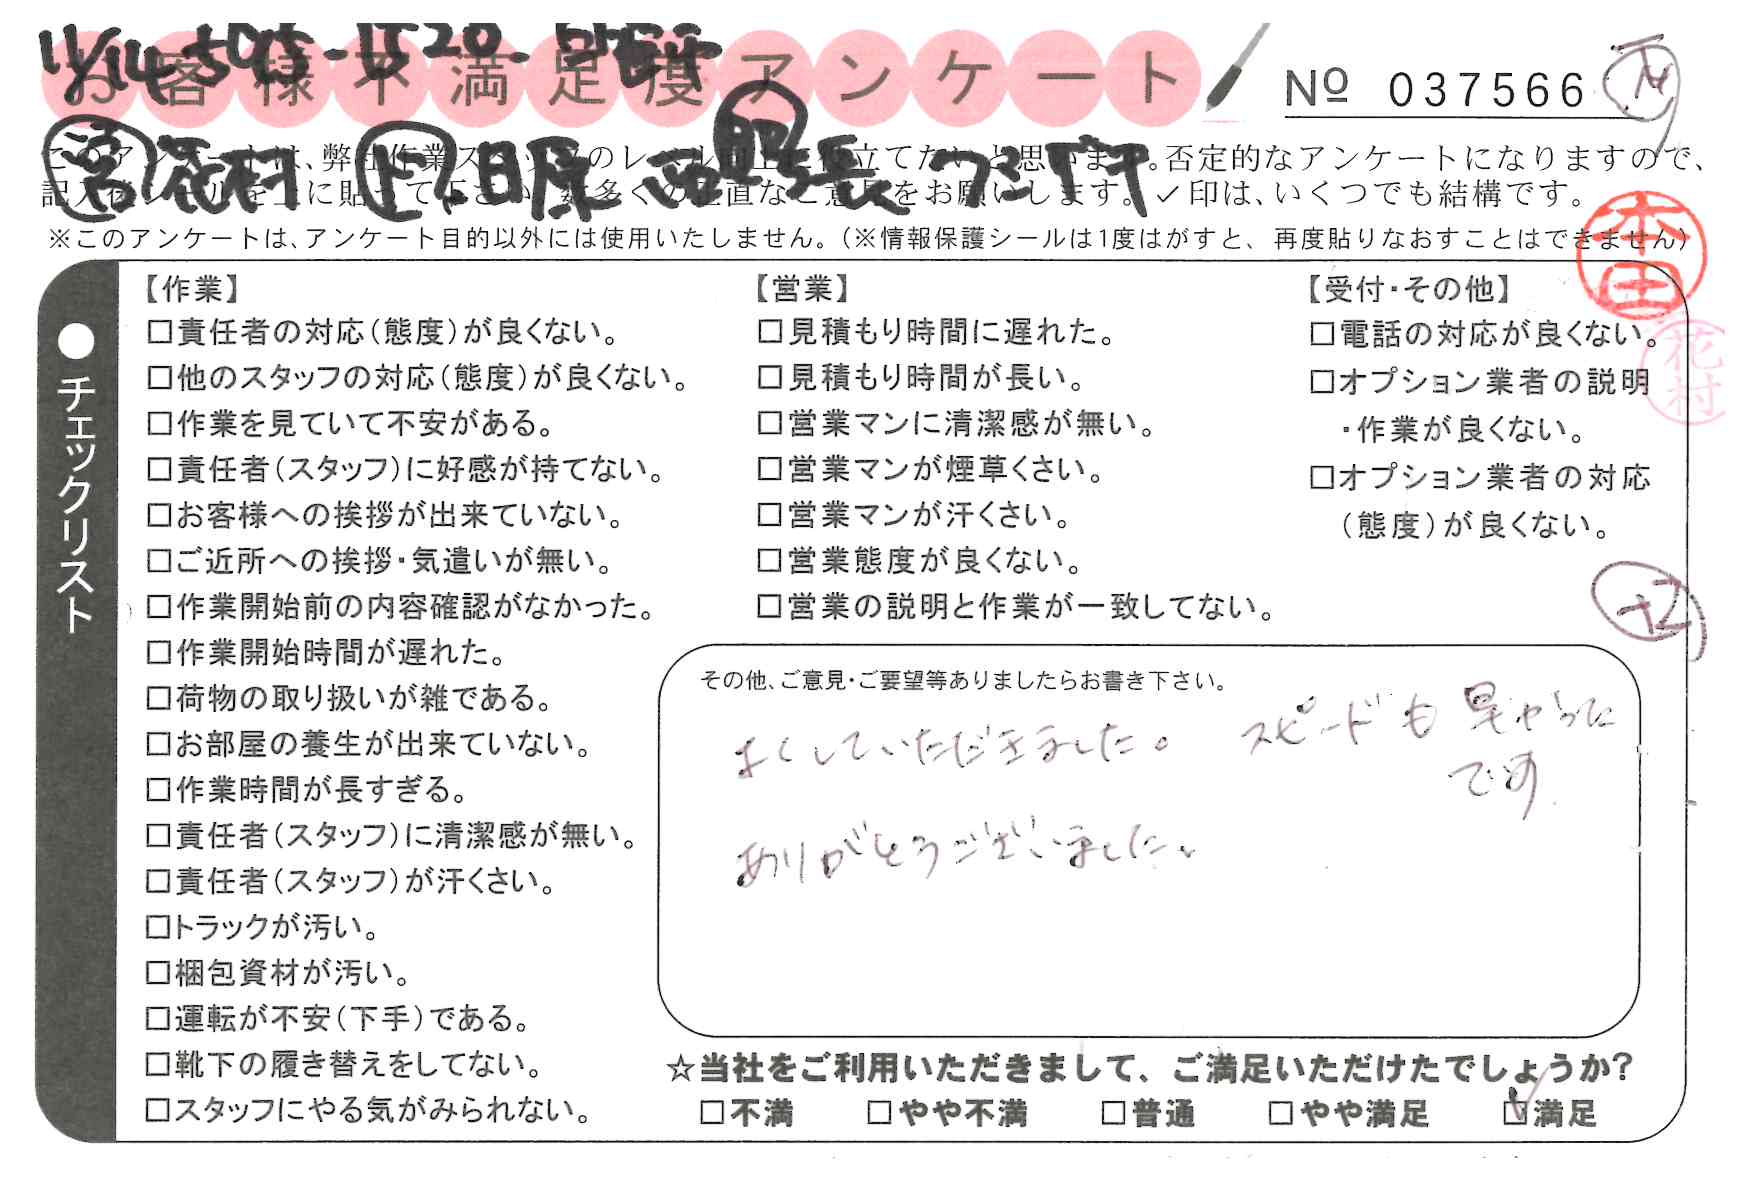 お客様不満足度アンケート
№ 037566
このアンケートは、弊社作業スタッフのレベル向上に役立てたいと思います。否定的なアンケートになりますので、
記入後シールを上に貼って下さい。数多くの正直なご意見をお願いします。✓印は、いくつでも結構です。
※このアンケートは、アンケート目的以外には使用いたしません。(※情報保護シールは1度はがすと、再度貼りなおすことはできません)
本田
花村
●チェックリスト
【作業】
□責任者の対応(態度)が良くない。
□他のスタッフの対応(態度)が良くない。
□作業を見ていて不安がある。
□責任者(スタッフ)に好感が持てない。
□お客様への挨拶が出来ていない。
□ご近所への挨拶・気遣いが無い。
□作業開始前の内容確認がなかった。
□作業開始時間が遅れた。
□荷物の取り扱いが雑である。
□お部屋の養生が出来ていない。
□作業時間が長すぎる。
□責任者(スタッフ)に清潔感が無い。
□責任者(スタッフ)が汗くさい。
□トラックが汚い。
□梱包資材が汚い。
□運転が不安(下手)である。
□靴下の履き替えをしてない。
□スタッフにやる気がみられない。
【営業】
□見積もり時間に遅れた。
□見積もり時間が長い。
□営業マンに清潔感が無い。
□営業マンが煙草くさい。
□営業マンが汗くさい。
□営業態度が良くない。
□営業の説明と作業が一致してない。
【受付・その他】
□電話の対応が良くない。
□オプション業者の説明
・作業が良くない。
□オプション業者の対応
(態度)が良くない。
その他、ご意見・ご要望等ありましたらお書き下さい。
よくしていただきました。 スピードも早かった
です
ありがとうございました。
☆当社をご利用いただきまして、ご満足いただけたでしょうか?
□不満 □やや不満 □普通 □やや満足 ☑満足